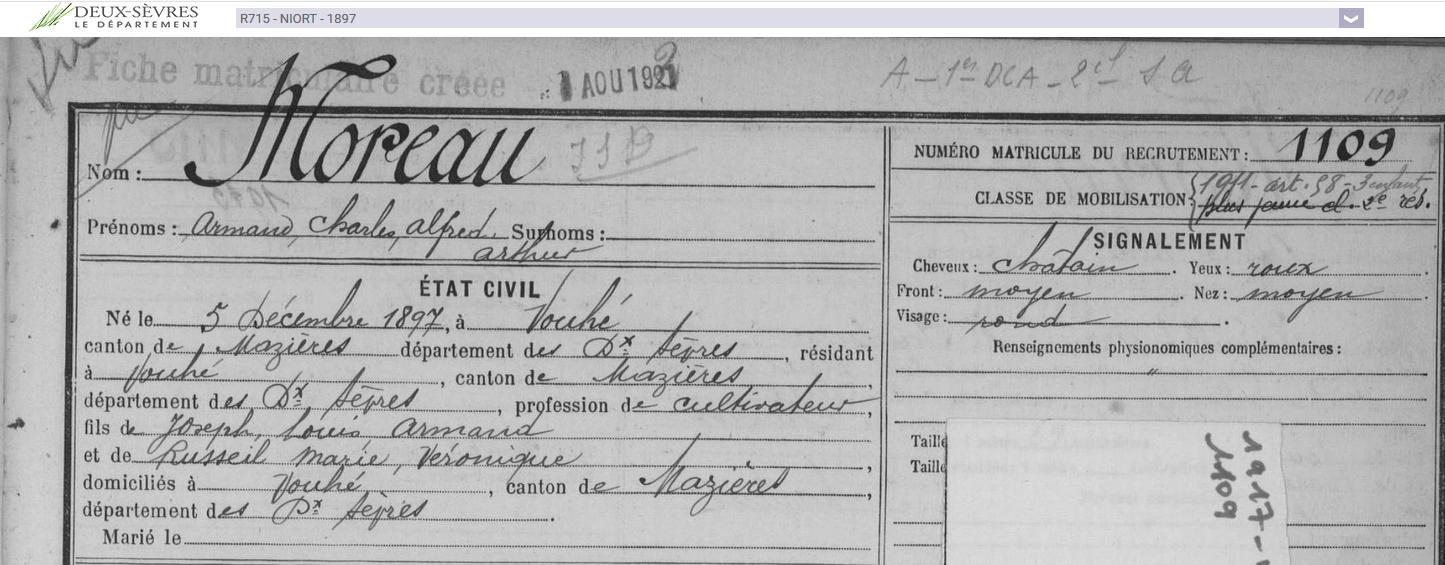 DEUX-SÈVRES
LE DÉPARTEMENT
R715 - NIORT - 1897
Fiche matriculaire créée
1 AOU 192
A - 1er DCA - 2e
1109
Nom : Moreau
NUMÉRO MATRICULE DU RECRUTEMENT : 1109
CLASSE DE MOBILISATION 1911 - art. 58 - 3 enfants
plus jeune cl. 2e rés.
Prénoms : Armand, Charles, Alfred. Surnoms :
arthur
SIGNALEMENT
Cheveux : chatain . Yeux : roux .
Front : moyen . Nez : moyen .
Visage : rond .
Renseignements physionomiques complémentaires :
"
Taille
Taille
1917 -
1109
ÉTAT CIVIL
Né le 5 Décembre 1897, à Vouhé
canton de Mazières département des Dx Sèvres, résidant
à Vouhé, canton de Mazières,
département des Dx Sèvres, profession de cultivateur,
fils de Joseph, Louis Armand
et de Russeil Marie, Véronique,
domiciliés à Vouhé, canton de Mazières,
département des Dx Sèvres.
Marié le